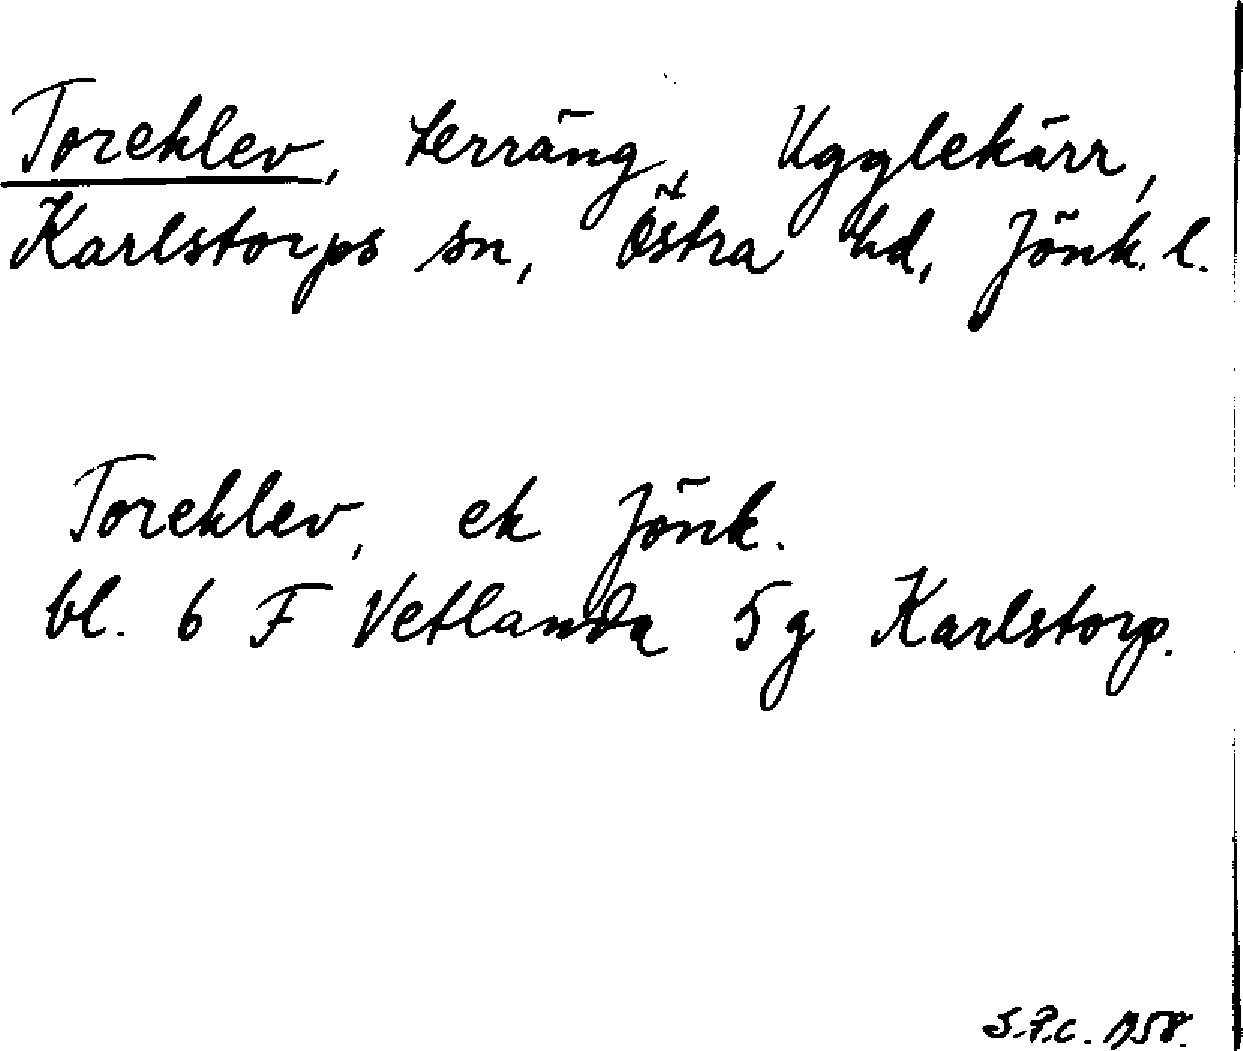 Toreklev, terräng, Ugglekärr,
Karlstorps sn, Östra hd, Jönk. l.
Toreklev, ek Jönk.
bl. 6 F Vetlanda 5g Karlstorp.
S.P.C. 1958.